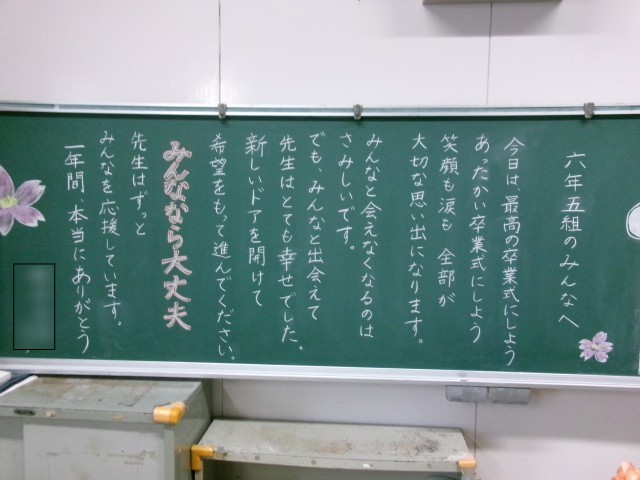 六年五組のみんなへ
今日は、最高の卒業式にしよう
あったかい卒業式にしよう
笑顔も涙も 全部が
大切な思い出になります。
みんなと会えなくなるのは
さみしいです。
でも、みんなと出会えて
先生はとても幸せでした。
新しいドアを開けて
希望をもって進んでください。
みんななら大丈夫
先生はずっと
みんなを応援しています。
一年間、本当にありがとう